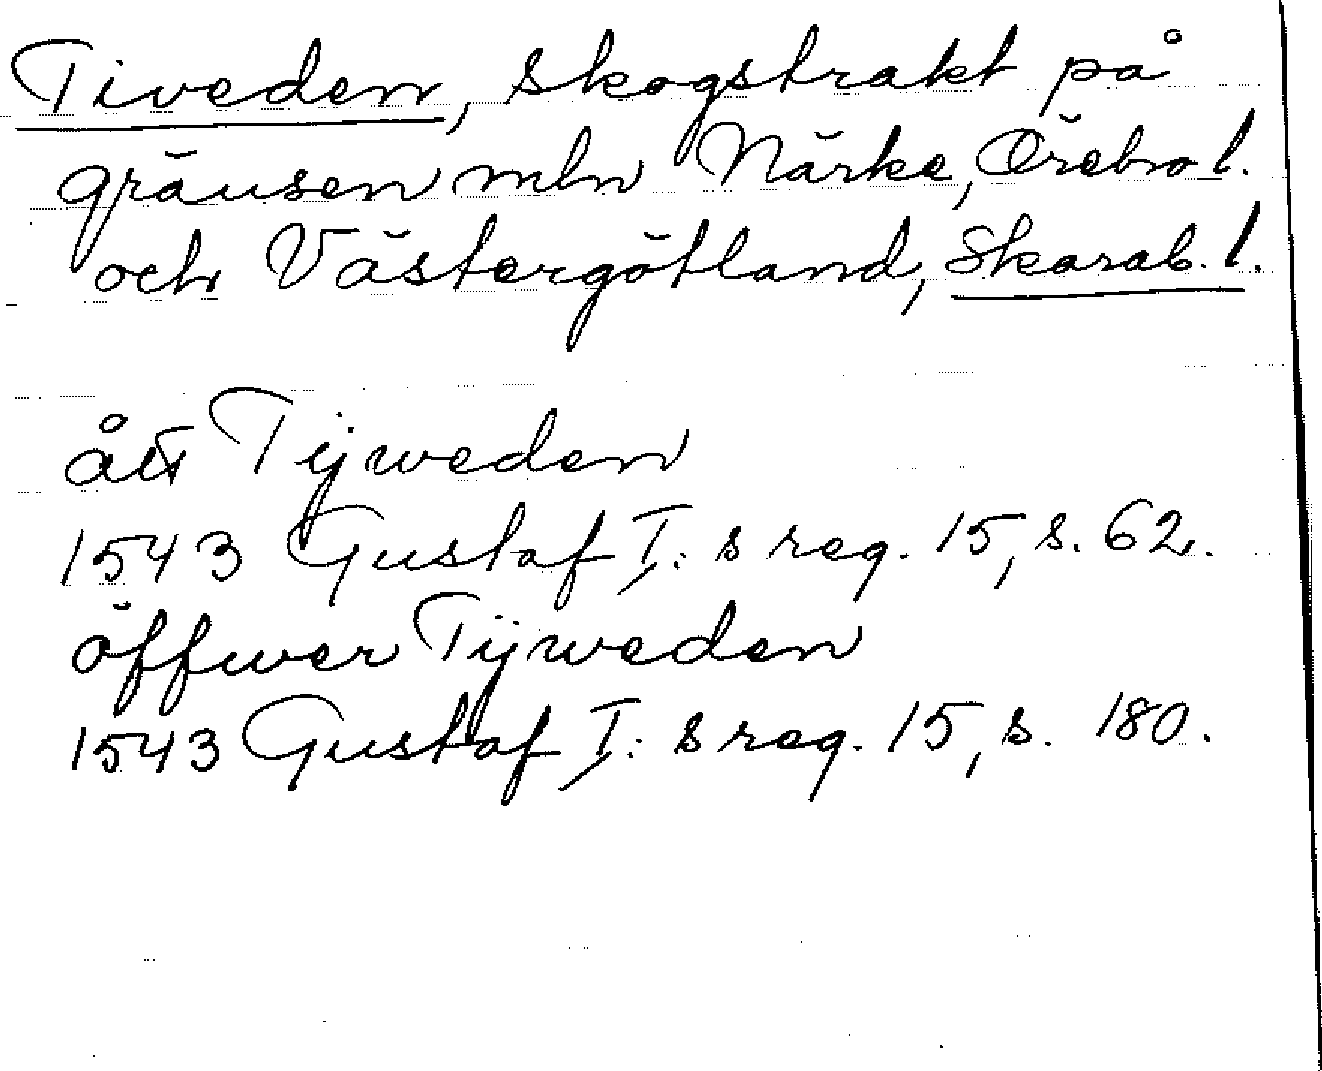 Tiveden, skogstrakt på
gränsen mln Närke, Örebro l.
och Västergötland, Skarab. l.
Tijweden
1543 Gustaf I:s reg. 15, s. 62.
öffwer Tijweden
1543 Gustaf I:s reg. 15, s. 180.